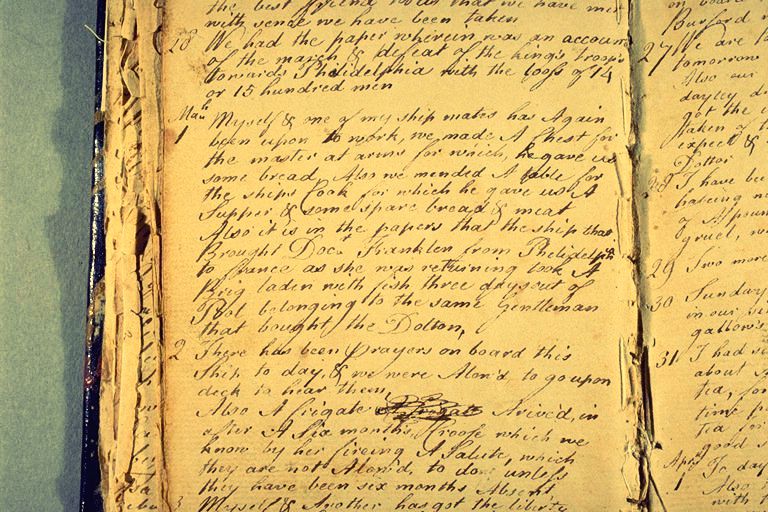 the best friend
with sence we have been taken
28 We had the paper wherein was an account
of the march & defeat of the king's troops
towards Philidelphia with the loss of 14
or 15 hundred men
Mach
1 Myself & one of my ship mates has Again
been upon to work, we made A Chest for
the master at arms for which, he gave us
some bread, Also we mended A table for
the ships Cook for which he gave us A
Supper & some spare bread & meat
Also it is in the papers that the ship that
Brought Docr Franklen from Philidelphia
to france as she was returning took A
Brig laden with fish three days out of
Pool belonging to the same Gentleman
that bought the Dolton,
2 There has been Prayers on board this
Ship to day, & we were Alow'd, to go upon
deck to hear them,
Also A frigate Arive'd, in
after A Six months, Croose which we
know by her fireing A Salute, which
they are nott Alow'd, to do unless
they have been six months Absent,
3 Myself & Another has got the liberty
on board
Burford
27 We are
tomorrow
Also our
dayley
got the
taken of
expect &
Dottor
28 I have be
haseing no
of A poun
gruel, w
29 Two more
30 Sunday
in our
gallows
31 I had
about
tea, for
time p
tea for
good
Aprl
1 To day
Also
with t